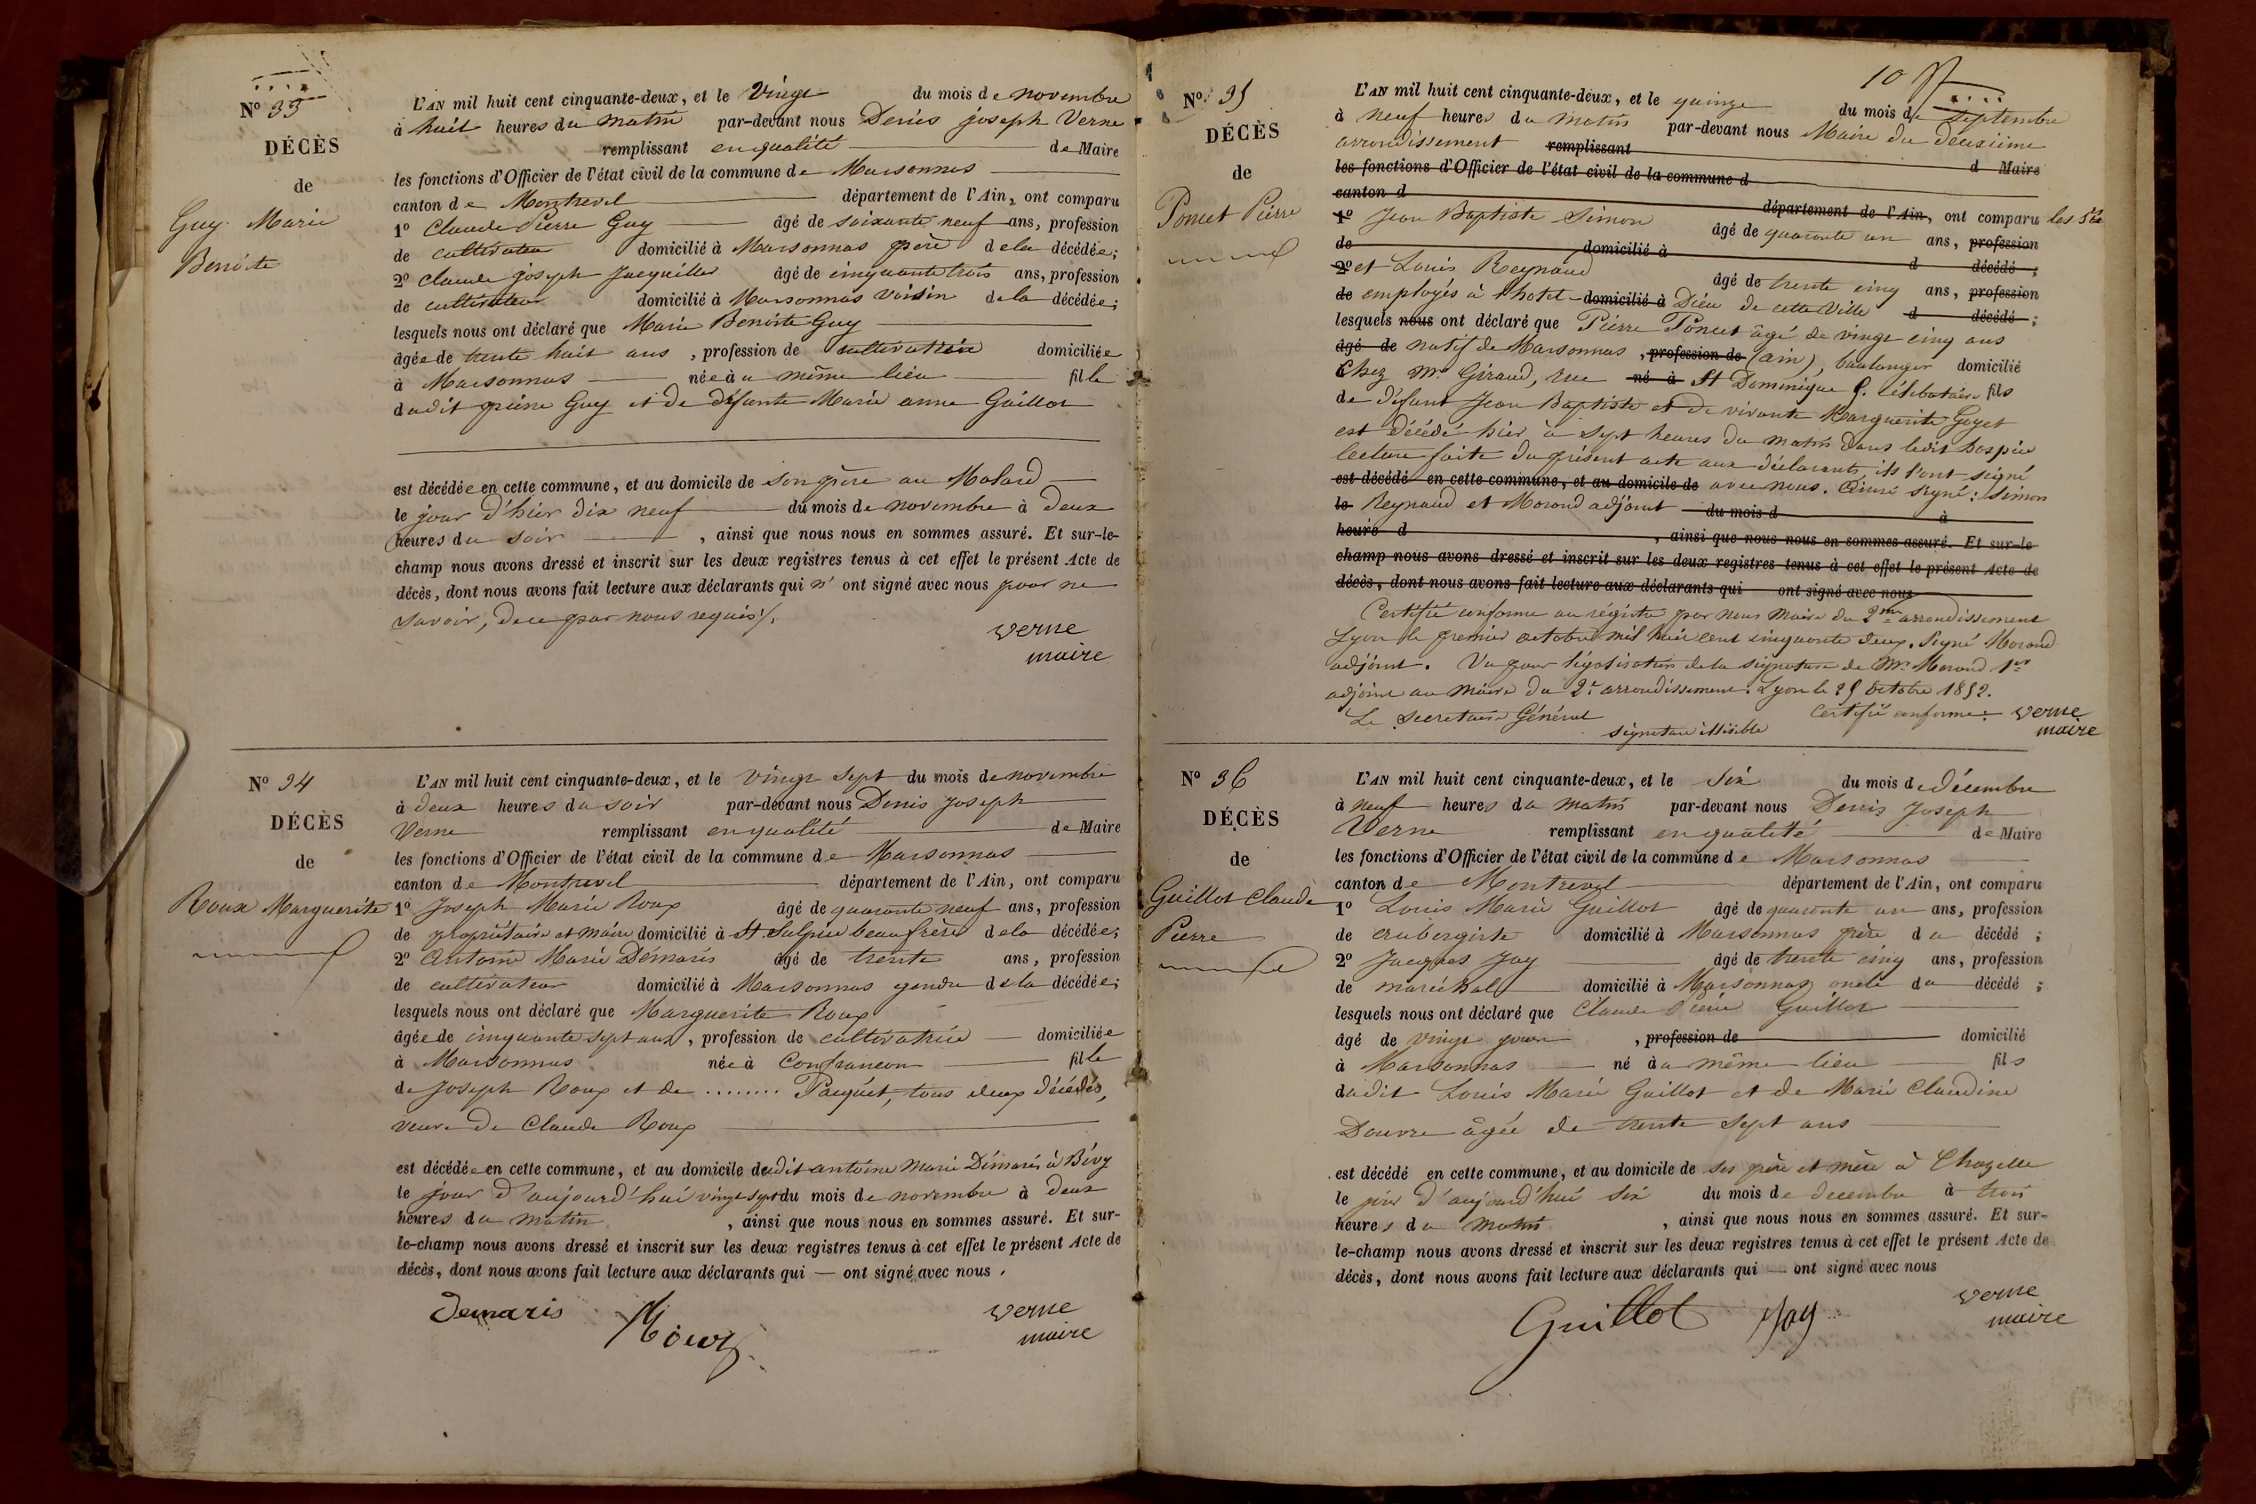 N° 33
DÉCÈS
de
Guy Marie
Benoite
L'AN mil huit cent cinquante-deux, et le Vingt du mois de novembre
à huit heures du matin par-devant nous Denis joseph Verne
remplissant en qualité de Maire
les fonctions d'Officier de l'état civil de la commune de Marsonnas
canton de Montrevel département de l'Ain, ont comparu
1° Claude Pierre Guy âgé de soixante neuf ans, profession
de cultivateur domicilié à Marsonnas père de la décédée;
2° Claude joseph Jacquiller âgé de cinquante trois ans, profession
de cultivateur domicilié à Marsonnas voisin de la décédée;
lesquels nous ont déclaré que Marie Benoite Guy
âgée de trente huit ans, profession de cultivatrice domiciliée
à Marsonnas née au même lieu fille
dudit pierre Guy et de défunte Marie anne Guillot
est décédée en cette commune, et au domicile de son père au Molard
le jour d'hier dix neuf du mois de novembre à deux
heures du soir, ainsi que nous nous en sommes assuré. Et sur-le-
champ nous avons dressé et inscrit sur les deux registres tenus à cet effet le présent Acte de
décès, dont nous avons fait lecture aux déclarants qui n'ont signé avec nous pour ne
savoir, de ce par nous requis/.
verne
maire
N° 34
DÉCÈS
de
Roux Marguerite
L'AN mil huit cent cinquante-deux, et le vingt sept du mois de novembre
à deux heures du soir par-devant nous Denis joseph
Verne remplissant en qualité de Maire
les fonctions d'Officier de l'état civil de la commune de Marsonnas
canton de Montrevel département de l'Ain, ont comparu
1° Joseph Marie Roux âgé de quarante neuf ans, profession
de propriétaire et maire domicilié à St. Sulpice beau frère de la décédée;
2° Antoine Marie Démaris âgé de trente ans, profession
de cultivateur domicilié à Marsonnas gendre de la décédée;
lesquels nous ont déclaré que Marguerite Roux
âgée de cinquante sept ans, profession de cultivatrice domiciliée
à Marsonnas née à Confrancon fille
de Joseph Roux et de ........ Paquet, tous deux décédés,
veuve de Claude Roux
est décédée en cette commune, et au domicile dudit antoine Marie Démaris à Bévy
le jour d'aujourd'hui vingt sept du mois de novembre à deux
heures du matin, ainsi que nous nous en sommes assuré. Et sur-
le-champ nous avons dressé et inscrit sur les deux registres tenus à cet effet le présent Acte de
décès, dont nous avons fait lecture aux déclarants qui — ont signé avec nous.
demaris Roux
verne
maire
10
N° 35
DÉCÈS
de
Poncet Pierre
L'AN mil huit cent cinquante-deux, et le quinze du mois de septembre
à neuf heures du matin par-devant nous Maire du deuxième
arrondissement remplissant
les fonctions d'Officier de l'état civil de la commune d d Maire
canton d département de l'Ain, ont comparu les Srs
1° Jean Baptiste Simon âgé de quarante un ans, profession
de domicilié à d décédé;
2° et Louis Reynaud âgé de trente cinq ans, profession
de employés à l'hotel-domicilié à Dieu de cette Ville d décédé;
lesquels nous ont déclaré que Pierre Poncet âgé de vingt cinq ans
âgé de natif de Marsonnas, profession de (ain), boulanger domicilié
Chez Mr Giraud, rue né à St Dominique 9. célibataire fils
de défunt Jean Baptiste et de vivante Marguerite Goyet
est décédé hier à sept heures du matin dans ledit hospice
lecture faite du présent acte aux déclarants ils l'ont signé
est décédé en cette commune, et au domicile de avec nous. Ainsi signé: Simon
le Reynaud et Morand adjoint du mois d à
heure d, ainsi que nous nous en sommes assuré. Et sur-le
champ nous avons dressé et inscrit sur les deux registres tenus à cet effet le présent Acte de
décès, dont nous avons fait lecture aux déclarants qui ont signé avec nous
Certifié conforme au régistre par nous Maire du 2me arrondissement
Lyon le premier octobre mil huit cent cinquante deux. Signé Morand
adjoint. Vu pour légalisation de la signature de Mr. Morand 1er
adjoint au Maire du 2e arrondissement. Lyon le 25 octobre 1852.
Le Secretaire Général Certifié conforme: verne
signature illisible maire
N° 36
DÉCÈS
de
Guillot Claude
Pierre
L'AN mil huit cent cinquante-deux, et le Six du mois de décembre
à neuf heures du matin par-devant nous Denis Joseph
Verne remplissant en qualité de Maire
les fonctions d'Officier de l'état civil de la commune de Marsonnas
canton de Montrevel département de l'Ain, ont comparu
1° Louis Marie Guillot âgé de quarante un ans, profession
de aubergiste domicilié à Marsonnas père du décédé;
2° Jacques Jay âgé de trente cinq ans, profession
de maréchal domicilié à Marsonnas oncle du décédé;
lesquels nous ont déclaré que Claude Pierre Guillot
âgé de vingt jours, profession de domicilié
à Marsonnas né au même lieu fils
dudit Louis Marie Guillot et de Marie Claudine
Douvre âgée de trente sept ans
est décédé en cette commune, et au domicile de ses père et mère à Chazelle
le jour d'aujourd'hui six du mois de decembre à trois
heures du matin, ainsi que nous nous en sommes assuré. Et sur-
le-champ nous avons dressé et inscrit sur les deux registres tenus à cet effet le présent Acte de
décès, dont nous avons fait lecture aux déclarants qui — ont signé avec nous
Guillot Jay
verne
maire